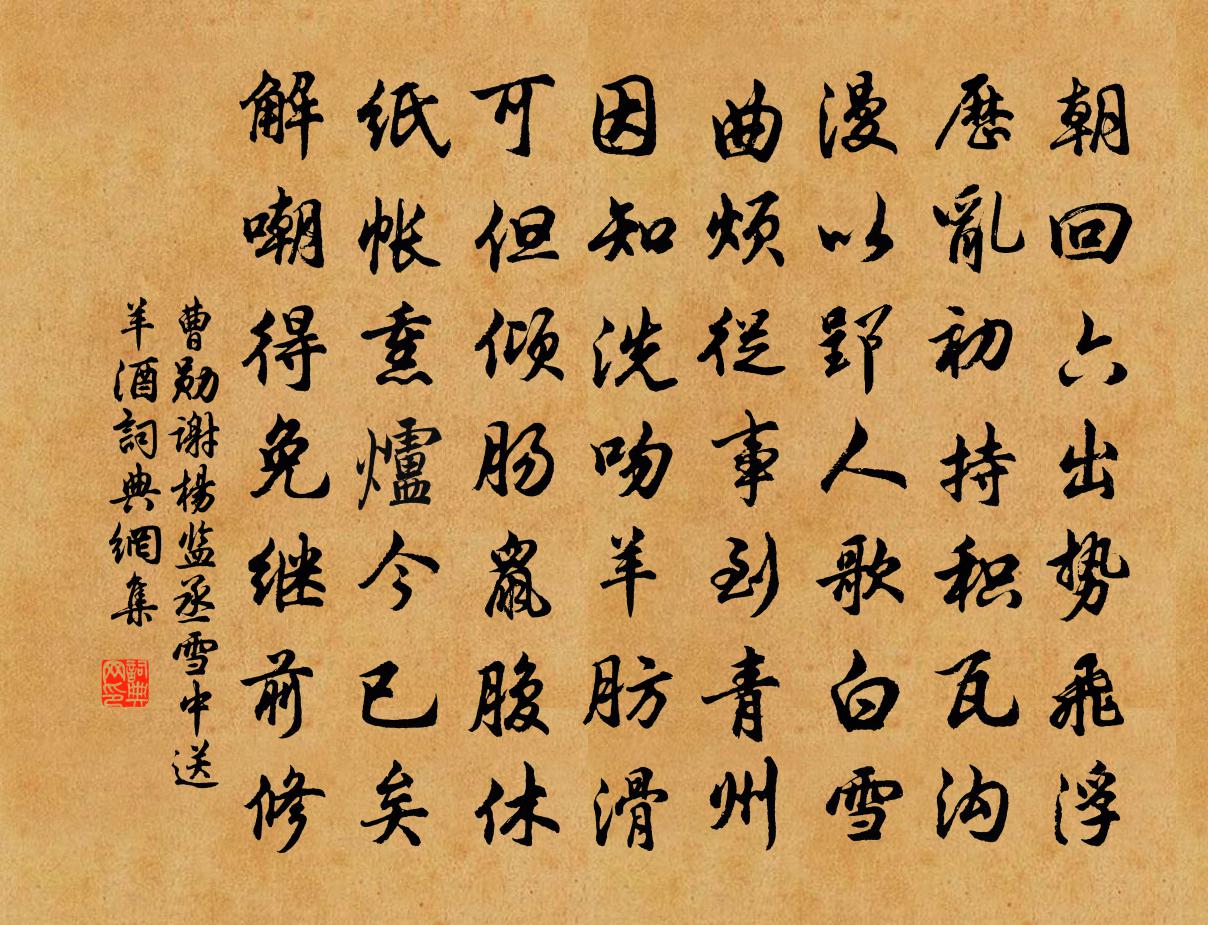 朝回六出势飛浮
歷亂初持积瓦沟
漫以郢人歌白雪
曲烦従事到青州
因知洗吻羊肪滑
可但倾肠鼠腹休
纸帐熏爐今已矣
解嘲得免继前修
曹勋谢楊监丞雪中送
羊酒詞典網集
詞典
网印